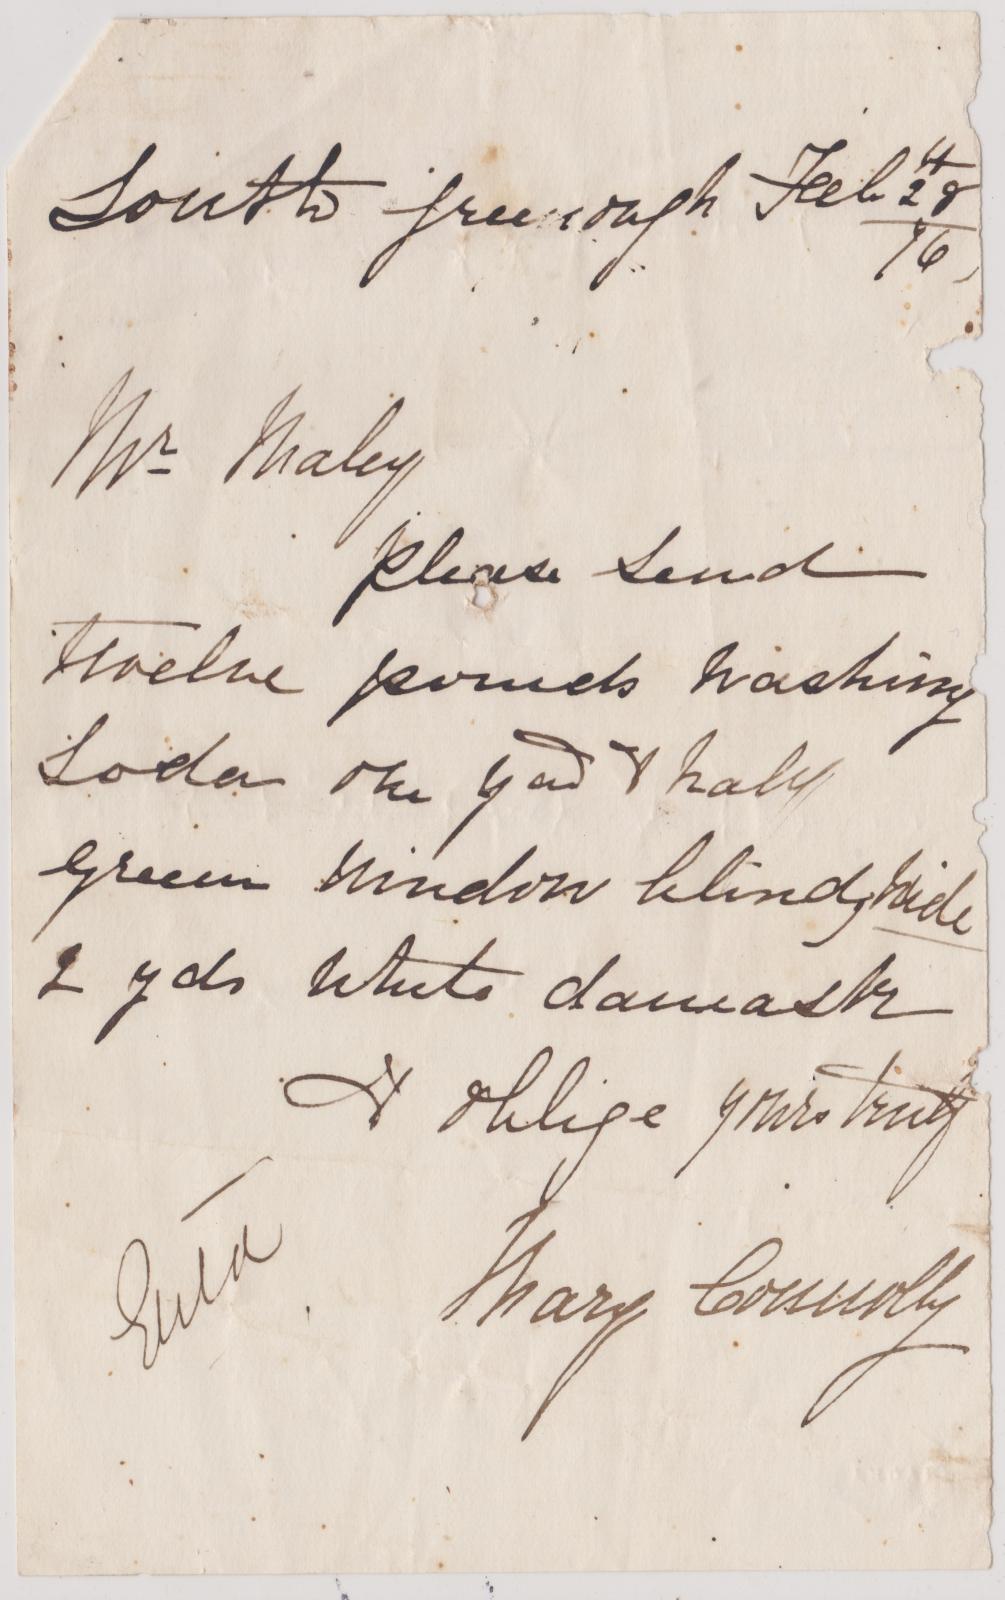 South Greenough Feb 28th
/76
Mr Maley
please send
twelve pounds washing
Soda one yad & half
green window blind, wide
2 yds white damask
& oblige yours truly
Mary Connolly
Entd